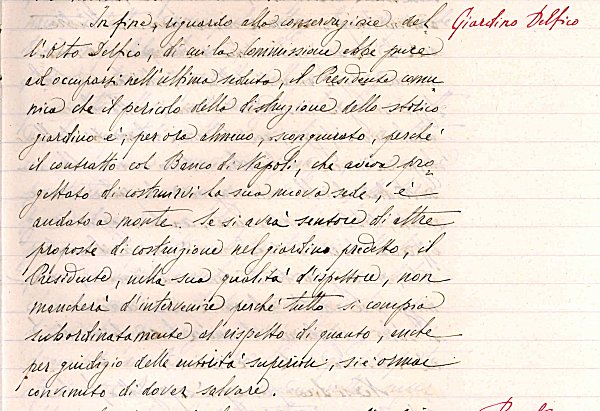 In fine, riguardo alla conservazione del Giardino Delfico
l'Orto Delfico, di cui la Commissione ebbe pure
ad occuparsi nell'ultima seduta, il Presidente comu-
nica che il pericolo della distruzione dello storico
giardino è, per ora almeno, scongiurato, perché
il contratto col Banco di Napoli, che aveva pro-
gettato di costruirvi la sua nuova sede, è
andato a monte. Se si avrà sentore di altre
proposte di costruzione nel giardino predetto, il
Presidente, nella sua qualità d'ispettore, non
mancherà d'intervenire perché tutto si compia
subordinatamente al rispetto di quanto, anche
per giudizio delle autorità superiori, si è ormai
convenuto di dover salvare.